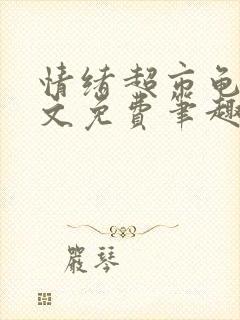 情绪超市龟
文免费笔趣
严琴